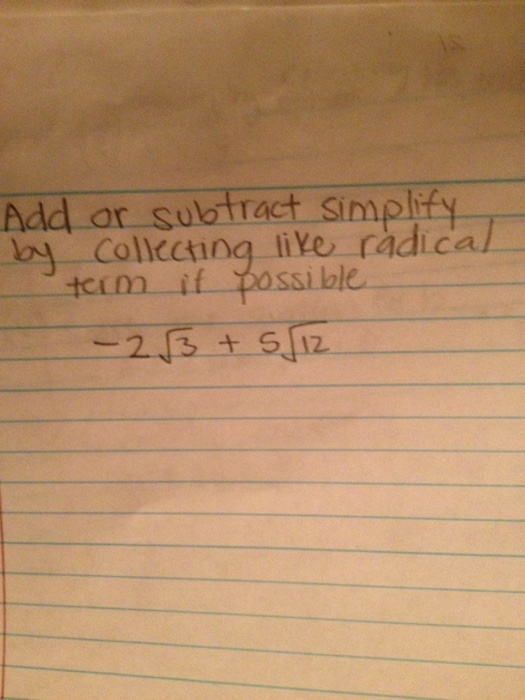 Add or subtract simplify
by collecting like radical
term if possible
-2√3 + 5√12